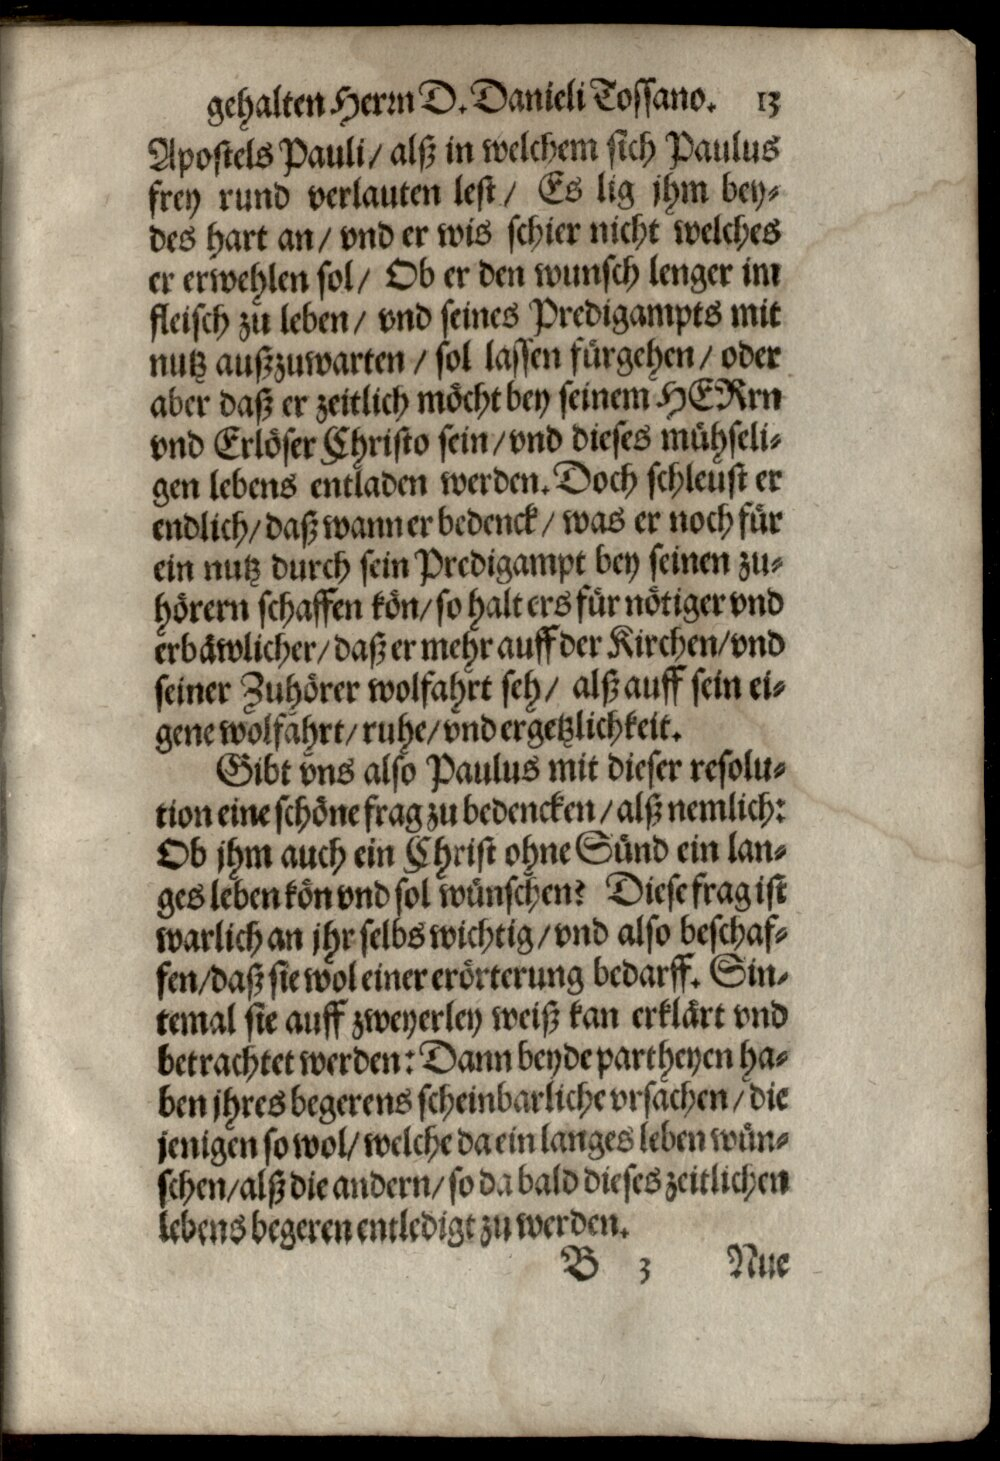 gehalten Herrn D. Danieli Tossano. 13
Apostels Pauli/ alß in welchem sich Paulus
frey rund verlauten lest/ Es lig jhm bey⸗
des hart an/ vnd er wis schier nicht welches
er erwehlen sol/ Ob er den wunsch lenger im
fleisch zu leben/ vnd seines Predigampts mit
nutz außzuwarten/ sol lassen fürgehen/ oder
aber daß er zeitlich möcht bey seinem HERrn
vnd Erlöser Christo sein/ vnd dieses mühseli⸗
gen lebens entladen werden. Doch schleust er
endlich/ daß wann er bedenck/ was er noch für
ein nutz durch sein Predigampt bey seinen zu⸗
hörern schaffen kön/ so halt ers für nötiger vnd
erbäwlicher/ daß er mehr auff der Kirchen/ vnd
seiner Zuhörer wolfahrt seh/ alß auff sein ei⸗
gene wolfahrt/ ruhe/ vnd ergetzlichkeit.
Gibt vns also Paulus mit dieser resolu⸗
tion eine schöne frag zu bedencken/ alß nemlich:
Ob jhm auch ein Christ ohne Sünd ein lan⸗
ges leben kön vnd sol wünschen? Diese frag ist
warlich an jhr selbs wichtig/ vnd also beschaf⸗
fen/ daß sie wol einer erörterung bedarff. Sin⸗
temal sie auff zweyerley weiß kan erklärt vnd
betrachtet werden: Dann beyde partheyen ha⸗
ben jhres begerens scheinbarliche vrsachen/ die
jenigen so wol/ welche da ein langes leben wün⸗
schen/ alß die andern/ so da bald dieses zeitlichen
lebens begeren entledigt zu werden.
B 3 Nue